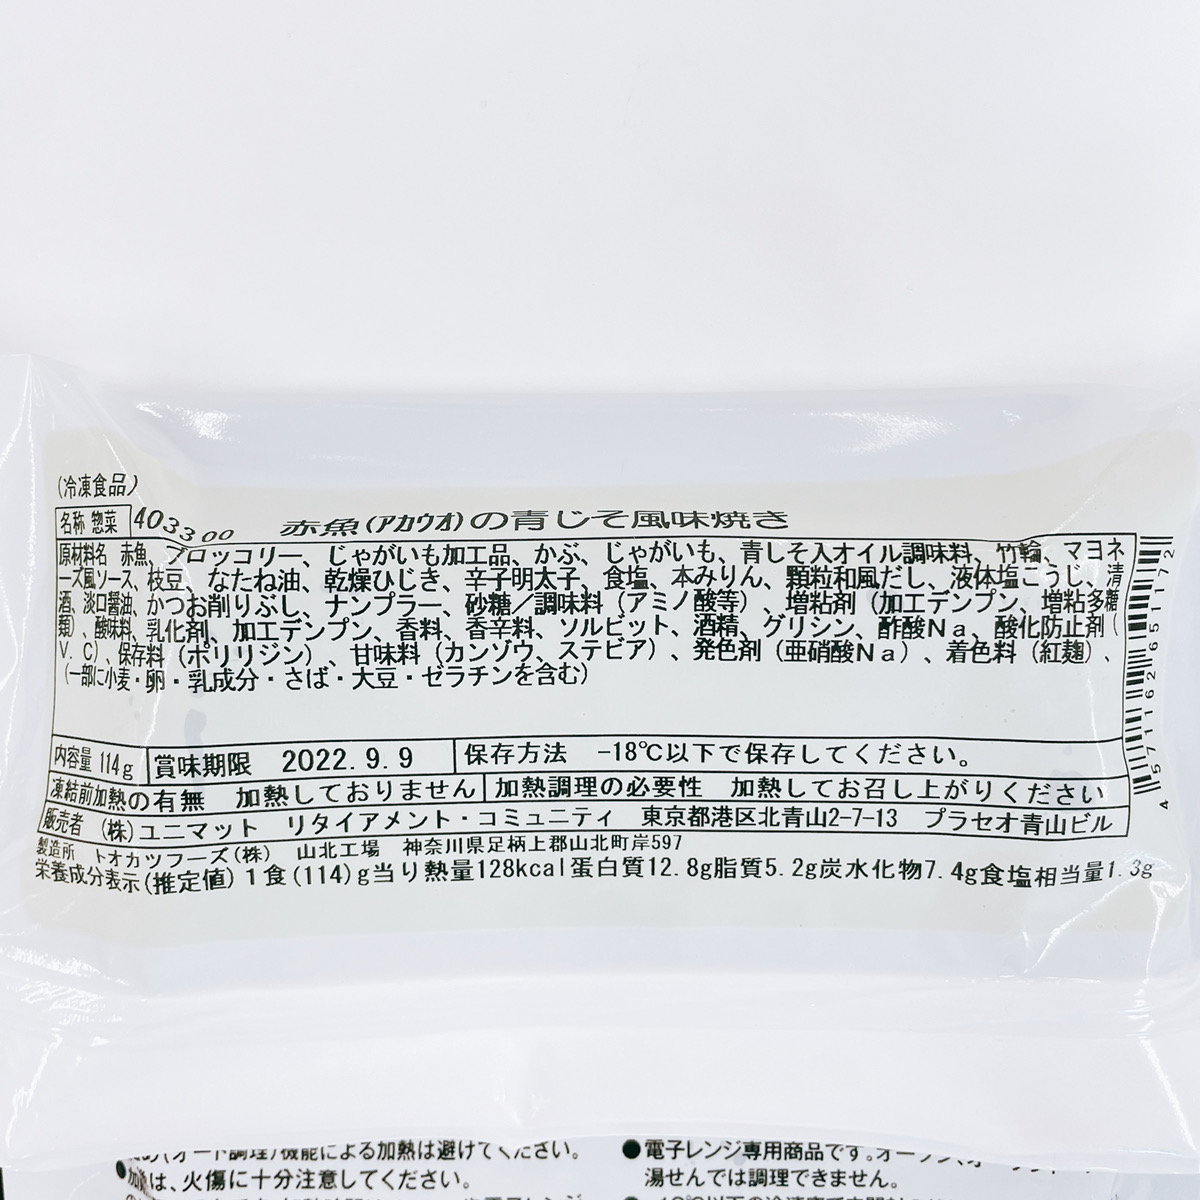 (冷凍食品)
名称 惣菜 403300 赤魚(アカウオ)の青じそ風味焼き
原材料名 赤魚、ブロッコリー、じゃがいも加工品、かぶ、じゃがいも、青しそ入オイル調味料、竹輪、マヨネ
ーズ風ソース、枝豆、なたね油、乾燥ひじき、辛子明太子、食塩、本みりん、顆粒和風だし、液体塩こうじ、清
酒、淡口醤油、かつお削りぶし、ナンプラー、砂糖/調味料(アミノ酸等)、増粘剤(加工デンプン、増粘多糖
類)、酸味料、乳化剤、加工デンプン、香料、香辛料、ソルビット、酒精、グリシン、酢酸Na、酸化防止剤(
V.C)、保存料(ポリリジン)、甘味料(カンゾウ、ステビア)、発色剤(亜硝酸Na)、着色料(紅麹)、
(一部に小麦・卵・乳成分・さば・大豆・ゼラチンを含む)
内容量 114g 賞味期限 2022.9.9 保存方法 -18℃以下で保存してください。
凍結前加熱の有無 加熱しておりません 加熱調理の必要性 加熱してお召し上がりください
販売者 (株)ユニマット リタイアメント・コミュニティ 東京都港区北青山2-7-13 プラセオ青山ビル
製造所 トオカツフーズ(株) 山北工場 神奈川県足柄上郡山北町岸597
栄養成分表示(推定値)1食(114)g当り熱量128kcal蛋白質12.8g脂質5.2g炭水化物7.4g食塩相当量1.3g
4571162651172
(オート調理)機能による加熱は避けてください。
は、火傷に十分注意してください。
●電子レンジ専用商品です。
湯せんでは調理できません。